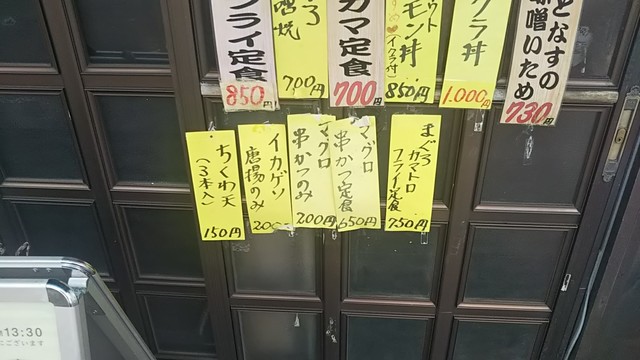 フライ定食
850円
味噌焼
700円
カマ定食
700円
モン丼
(イクラ付)
850円
クラ丼
1.000円
となすの
味噌いため
730円
ちくわ天
(3本入)
150円
イカゲソ
唐揚のみ
200
マグロ
串かつのみ
200円
マグロ
串かつ定食
650円
まぐろ
カマトロ
フライ定食
750円
13:30
ございます